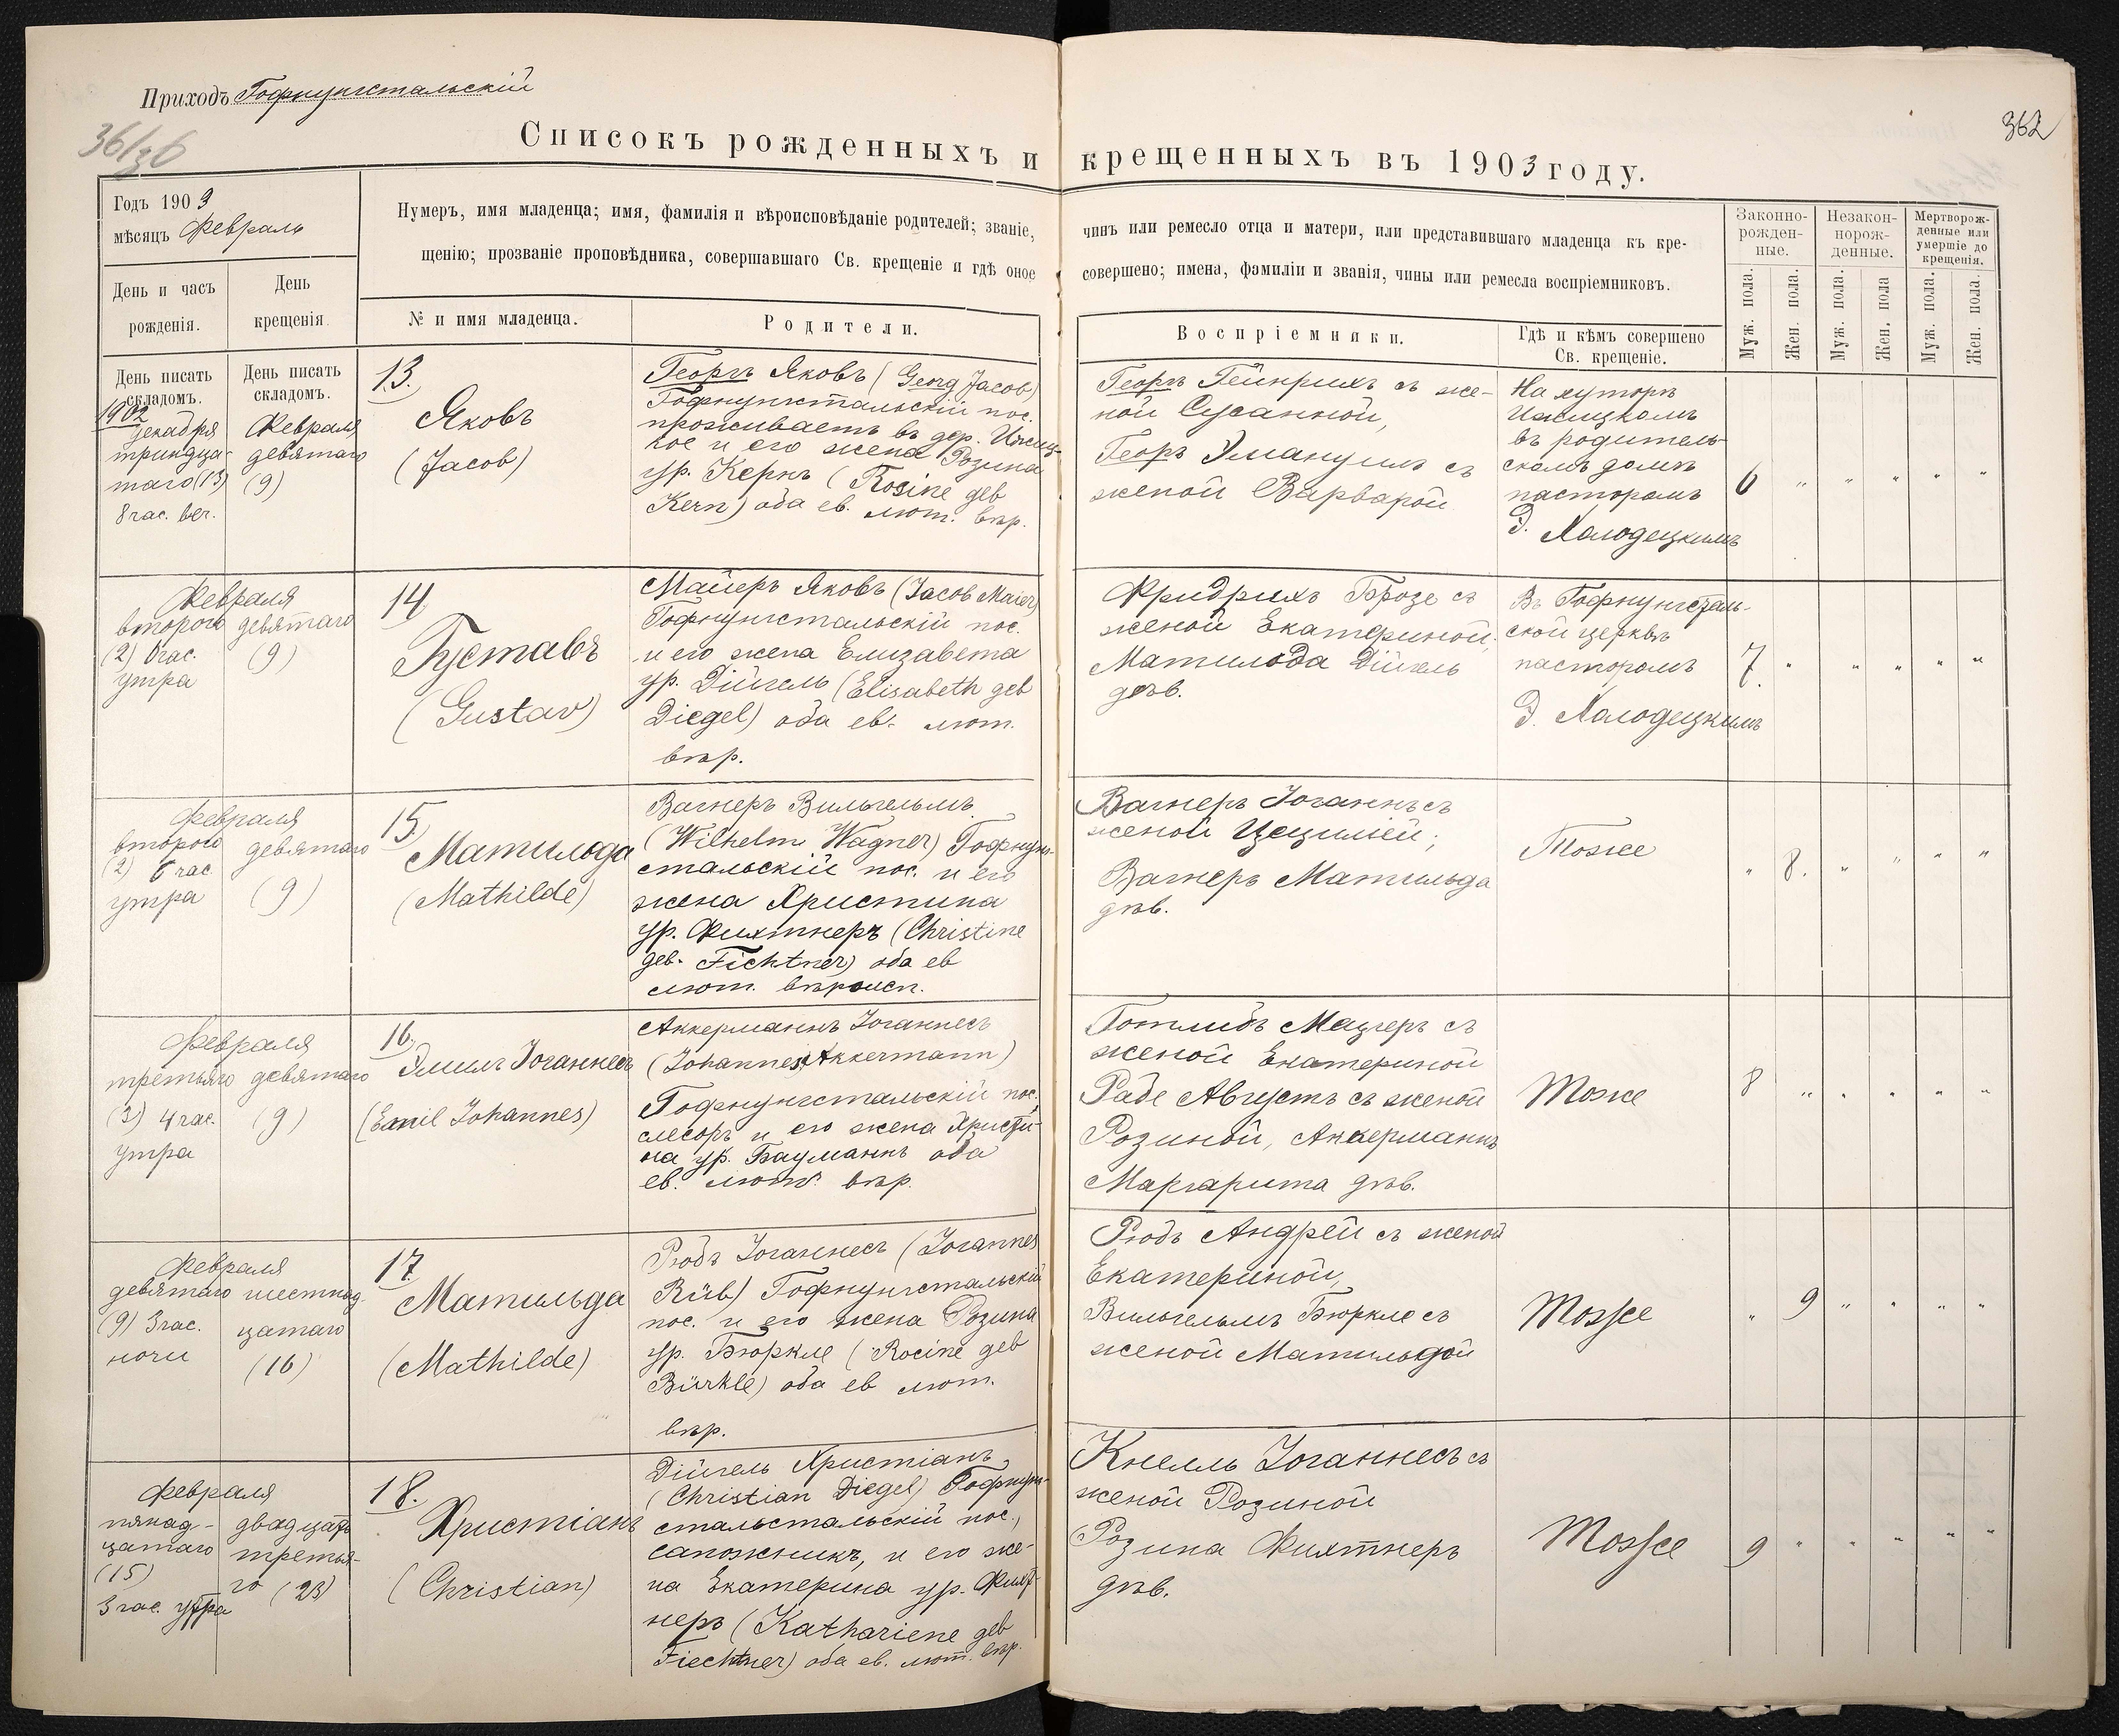 Приходъ Гофнунгстальскій
361/36
362
Списокъ рожденныхъ и крещенныхъ въ 1903 году.
Годъ 1903
мѣсяцъ Февраль
День и часъ
рожденія.
День
крещенія.
Нумеръ, имя младенца; имя, фамилія и вѣроисповѣданіе родителей; званіе, чинъ или ремесло отца и матери, или представившаго младенца къ кре-
щенію; прозваніе проповѣдника, совершавшаго Св. крещеніе и гдѣ оное совершено; имена, фамиліи и званія, чины или ремесла воспріемниковъ.
№ и имя младенца.
Родители.
Воспріемники.
Гдѣ и кѣмъ совершено
Св. крещеніе.
Законно-
рожден-
ные.
Незакон-
норож-
денные.
Мертворож-
денные или
умершіе до
крещенія.
Муж. пола.
Жен. пола.
Муж. пола.
Жен. пола
Муж. пола.
Жен. пола.
День писать
складомъ.
День писать
складомъ.
1902
декабря
тринадца-
таго (13)
8 час. веч.
Февраля
девятаго
(9)
13.
Яковъ
(Jacob)
Георгъ Яковъ (Georg Jacob)
Гофнунгстальскій пос.
проживаетъ въ дер.
кое и его жена Розина
ур. Кернъ (Rosine geb
Kern) оба ев. лют. вѣр.
Георгъ Гейнрихъ съ же-
ной Сусанной,
Георгъ Эмануилъ съ
женой Варварой
На хуторѣ
въ родитель-
скомъ домѣ
пасторомъ
Э. Холодецкимъ
6 " " " " "
Февраля
второго девятаго
(2) 6 час. (9)
утра
14
Густавъ
(Gustav)
Майеръ Яковъ (Jacob Maier)
Гофнунгстальскій пос.
и его жена Елизавета
ур. Дійгель (Elisabeth geb
Diegel) оба ев. лют.
вѣр.
Фридрихъ Брозе съ
женой Екатериной;
Матильда Дійгель
дѣв.
Въ Гофнунгсталь-
ской церквѣ
пасторомъ
Э. Холодецкимъ
7. " " " " "
Февраля
второго девятаго
(2) 6 час (9)
утра
15.
Матильда
(Mathilde)
Вагнеръ Вильгельмъ
(Wilhelm Wagner) Гофнунг-
стальскій пос. и его
жена Христина
ур. Фихтнеръ (Christine
geb. Fichtner) оба ев
лют. вѣроисп.
Вагнеръ Іоганнъ съ
женой Цециліей;
Вагнеръ Матильда
дѣв.
Тоже
" 8. " " " "
Февраля
третьяго девятаго
(3) 4 час. (9)
утра
16.
Эмиль Іоганнесъ
(Emil Johannes)
Аккерманнъ Іоганнесъ
(Johannes Akkermann)
Гофнунгстальскій пос.,
слесарь и его жена Христи-
на ур. Бауманнъ оба
ев. лют. вѣр.
Готлибъ Мацгеръ съ
женой Екатериной
Раде Августъ съ женой
Розиной, Аккерманнъ
Маргарита дѣв.
Тоже
8 " " " " "
Февраля
девятаго шестнад-
(9) 3 час. цатаго
ночи (16)
17.
Матильда
(Mathilde)
Рюбъ Іоганнесъ (Johannes
Rüb) Гофнунгстальскій
пос. и его жена Розина
ур. Бюркле (Rocine geb
Bürkle) оба ев лют.
вѣр.
Рюбъ Андрей съ женой
Екатериной,
Вильгельмъ Бюркле съ
женой Матильдой
Тоже
" 9 " " " "
Февраля
пянад- двадцать
цатаго третья-
(15) го (23)
3 час. утра
18.
Христіанъ
(Christian)
Дійгель Христіанъ
(Christian Diegel) Гофнунг-
стальстальскій пос.,
сапожникъ, и его же-
на Екатерина ур. Фихт-
неръ (Kathariene geb
Fiechtner) оба ев. лют. вѣр.
Кнелль Іоганнесъ съ
женой Розиной
Розина Фихтнеръ
дѣв.
Тоже
9 " " " " "